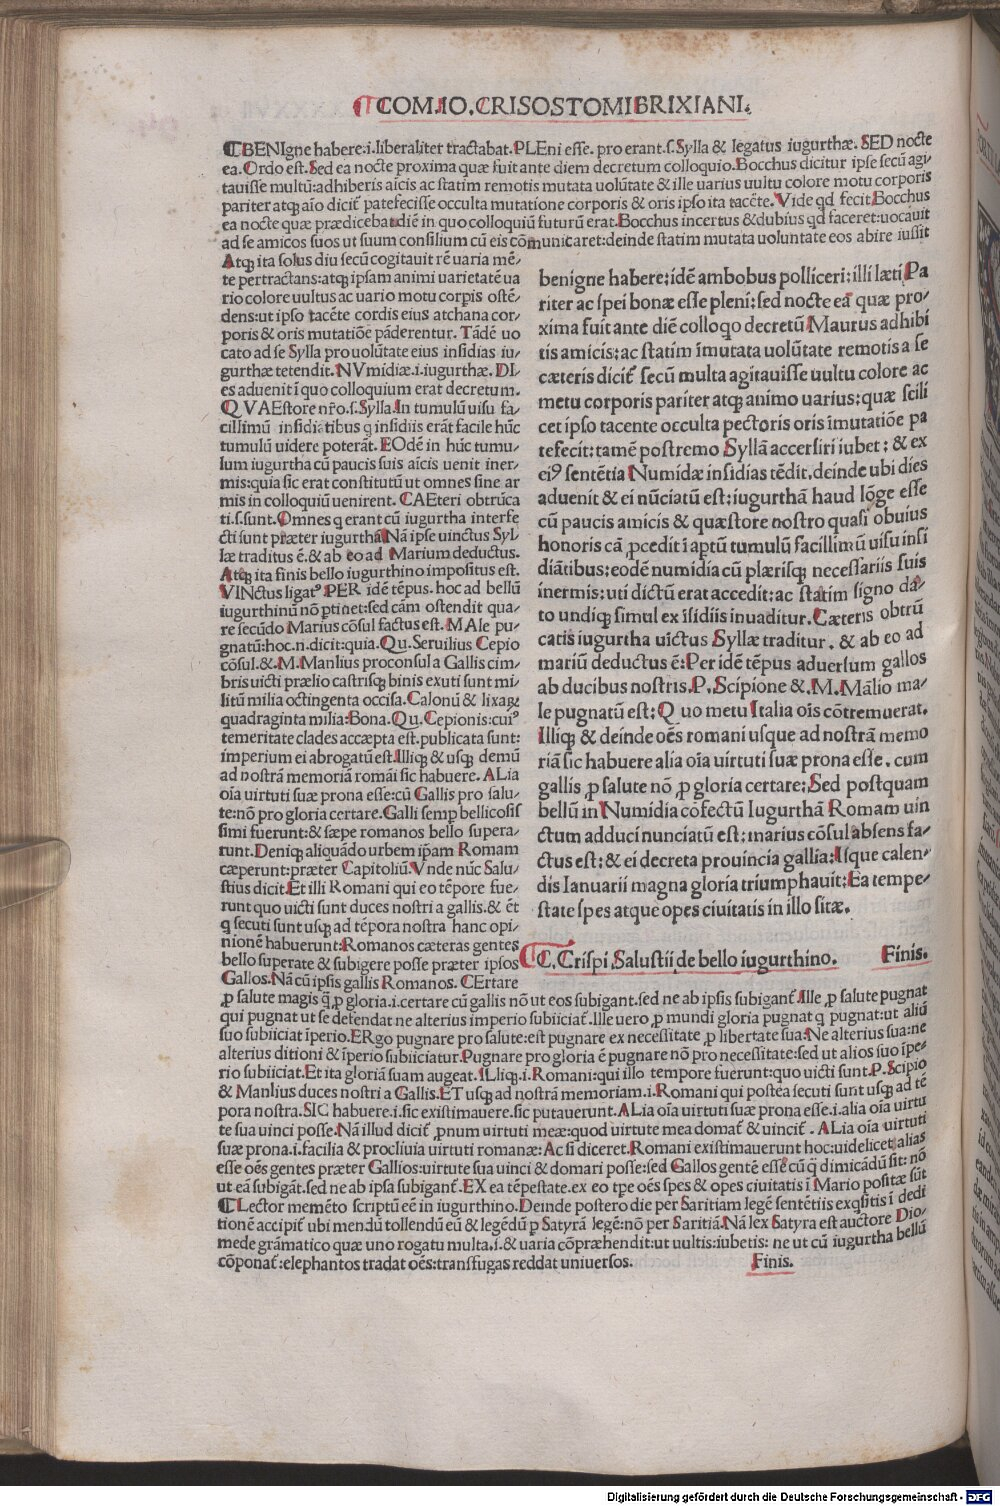 ¶COM.IO.CRISOSTOMI BRIXIANI.
¶BENIgne habere.i.liberaliter tractabat.PLEni esse. pro erant.s.Sylla & legatus iugurthæ. SED nocte
ea.Ordo est.Sed ea nocte proxima quæ fuit ante diem decretum colloquio.Bocchus dicitur ipse secū agi⸗
tauisse multū:adhiberis aīcis ac statim remotis mutata uolūtate & ille uarius uultu colore motu corporis
pariter atqꝫ aīo dicit̄ patefecisse occulta mutatione corporis & oris ipso ita tacēte. Vide qd̄ fecit Bocchus
ea nocte quæ prædicebat diē in quo colloquiū futurū erat.Bocchus incertus & dubius qd̄ faceret:uocauit
ad se amicos suos ut suum consilium cū eis cōmunicaret:deinde statim mutata uoluntate eos abire iussit
Atqꝫ ita solus diu secū cogitauit rē uaria mē⸗
te pertractans:atqꝫ ipsam animi uarietatē ua
rio colore uultus ac uario motu corpis ostē⸗
dens:ut ipso tacēte cordis eius atchana cor⸗
poris & oris mutatiōe pāderentur. Tādē uo
cato ad se Sylla pro uolūtate eius insidias iu⸗
gurthæ tetendit. NVmidiæ.i.iugurthæ. DI⸗
es aduenit ī quo colloquium erat decretum.
QVAEstore nr̄o.s.Sylla.In tumulū uisu fa⸗
cillimū insidiātibus q insidiis erāt facile hūc
tumulū uidere poterāt. EOdē in hūc tumu⸗
lum iugurtha cū paucis suis aīcis uenit iner⸗
mis:quia sic erat constitutū ut omnes sine ar
mis in colloquiū uenirent. CAEteri obtrūca
ti.s.sunt.Omnes q erant cū iugurtha interfe
cti sunt præter iugurthā.Nā ipse uinctus Syl⸗
læ traditus ē.& ab eo ad Marium deductus.
Atqꝫ ita finis bello iugurthino impositus est.
VINctus ligatꝰ.PER idē tēpus. hoc ad bellū
iugurthinū nō ptinet:sed cām ostendit qua⸗
re secūdo Marius cōsul factus est. MAle pu⸗
gnatū:hoc.n.dicit:quia.Qu.Seruilius Cepio
cōsul.&.M.Manlius proconsul a Gallis cim⸗
bris uicti prælio castrisqꝫ binis exuti sunt mi⸗
litū milia octingenta occisa.Calonū & lixaꝝ
quadraginta milia:Bona.Qu.Cepionis:cuiꝰ
temeritate clades accæpta est.publicata sunt:
imperium ei abrogatū est.Illiqꝫ & usqꝫ demū
ad nostrā memoriā romāi sic habuere. ALia
oīa uirtuti suæ prona esse:cū Gallis pro salu⸗
te:nō pro gloria certare.Galli semp bellicosis
simi fuerunt:& sæpe romanos bello supera⸗
runt.Deniqꝫ aliquādo urbem ip̄am Romam
cæperunt:præter Capitoliū.Vnde nūc Salu⸗
stius dicit.Et illi Romani qui eo tēpore fue⸗
runt quo uicti sunt duces nostri a gallis.& ēt
q secuti sunt usqꝫ ad tēpora nostra hanc opi⸗
nionē habuerunt:Romanos cæteras gentes
bello superate & subigere posse præter ipsos
Gallos.Nā cū ipsis gallis Romanos. CErtare
benigne habere:idē ambobus polliceri:illi læti Pa
riter ac spei bonæ esse pleni:sed nocte ea quæ pro⸗
xima fuit ante diē colloqo decretū Maurus adhibi
tis amicis:ac statim īmutata uolūtate remotis a se
cæteris dicit̄ secū multa agitauisse uultu colore ac
metu corporis pariter atqꝫ animo uarius:quæ scili
cet ipso tacente occulta pectoris oris īmutatiōe pa
tefecit:tamē postremo Syllā accersiri iubet: & ex
eiꝰ sentētia Numidæ insidias tēdit.deinde ubi dies
aduenit & ei nūciatū est:iugurthā haud lōge esse
cū paucis amicis & quæstore nostro quasi obuius
honoris cā ꝓcedit ī aptū tumulū facillimū uisu insi
diātibus:eodē numidia cū plærisqꝫ necessariis suis
inermis:uti dictū erat accedit:ac statim signo da⸗
to undiqꝫ simul ex īsidiis inuaditur.Cæteris obtrū
catis iugurtha uictus Syllæ traditur. & ab eo ad
mariū deductus ē:Per idē tēpus aduersum gallos
ab ducibus nostris.P.Scipione &.M.Māllo ma⸗
le pugnatū est:Quo metu Italia oīs cōtremuerat.
Illiqꝫ & deinde oēs romani usque ad nostrā memo
riā sic habuere alia oīa uirtuti suæ prona esse. cum
gallis ꝓ salute nō ꝓ gloria certare:Sed postquam
bellū in Numidia cōfectū Iugurthā Romam uin
ctum adduci nunciatū est:marius cōsul absens fa⸗
ctus est:& ei decreta prouincia gallia:Isque calen⸗
dis Ianuarii magna gloria triumphauit:Ea tempe⸗
state spes atque opes ciuitatis in illo sitæ.
¶C.Crispi Salustii de bello iugurthino. Finis.
ꝓ salute magis q̄ ꝓ gloria.i.certare cū gallis nō ut eos subigant.sed ne ab ipsis subigant̄.Ille ꝓ salute pugnat
qui pugnat ut se defendat ne alterius imperio subiiciat̄.Ille uero ꝓ mundi gloria pugnat q pugnat:ut aliū
suo subiiciat īperio.ERgo pugnare pro salute:est pugnare ex necessitate ꝓ libertate sua:Ne alterius sua:ne
alterius ditioni & īperio subiiciatur.Pugnare pro gloria ē pugnare nō pro necessitate:sed ut alios suo īpe⸗
rio subiiciat.Et ita gloriā suam augeat.ILliqꝫ.i.Romani:qui illo tempore fuerunt:quo uicti sunt.P.Scipio
& Manlius duces nostri a Gallis.ET usqꝫ ad nostrā memoriam.i.Romani qui postea secuti sunt usqꝫ ad tē
pora nostra.SIC habuere.i.sic existimauere.sic putauerunt.ALia oīa uirtuti suæ prona esse.i.alia oīa uirtu
te sua uinci posse.Nā illud dicit̄ ꝓnum uirtuti meæ:quod uirtute mea domat̄ & uincit̄. ALia oīa uirtuti
suæ prona.i.facilia & procliuia uirtuti romanæ:Ac si diceret.Romani existimauerunt hoc:uidelicet alias
esse oēs gentes præter Gallios:uirtute sua uinci & domari posse:sed Gallos gentē esse cū q̄ dimicādū sit: nō
ut eā subigāt.sed ne ab ipsa subigant̄.EX ea tēpestate.ex eo tpe oēs spes & opes ciuitatis ī Mario positæ sūt
¶Lector memēto scriptū eē in iugurthino.Deinde postero die per Saritiam legē sentētiis exqsitis ī dedi
tionē accipit̄ ubi mendū tollendū eū & legēdū ꝑ Satyrā legē:nō per Saritiā.Nā lex Satyra est auctore Dio⸗
mede grāmatico quæ uno rogatu multa.i.& uaria cōpræhendit:ut uultis:iubetis: ne ut cū iugurtha bellū
cōponat̄:elephantos tradat oēs:transfugas reddat uniuersos. Finis.
Digitalisierung gefördert durch die Deutsche Forschungsgemeinschaft - DFG